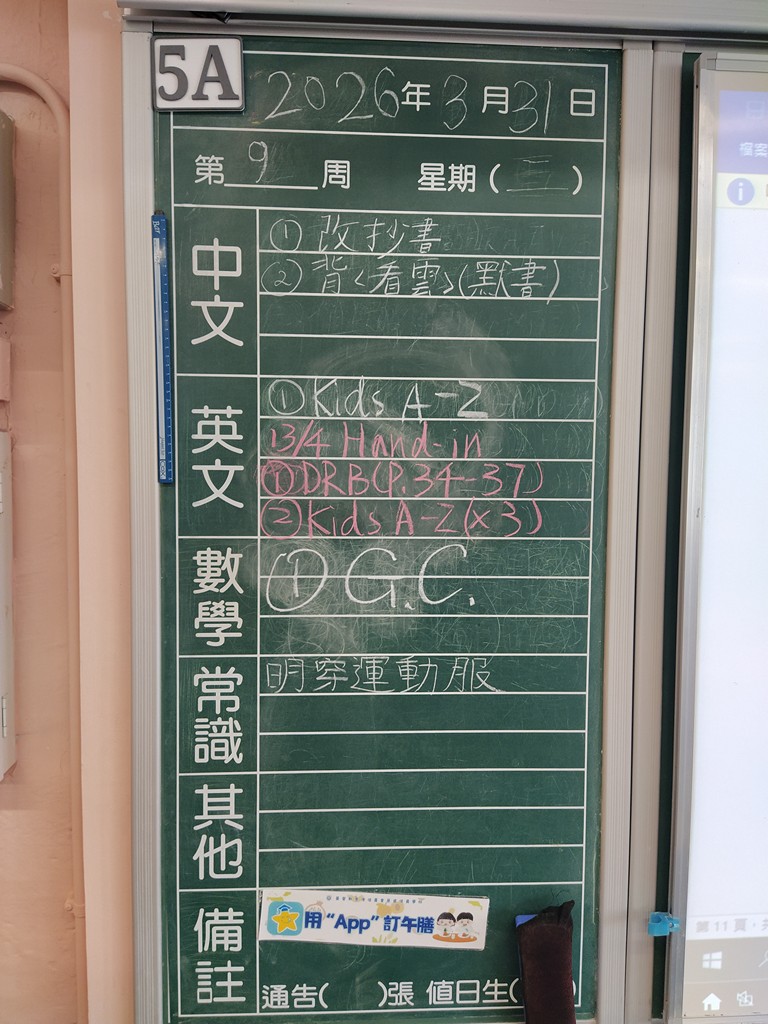 5A
2026年3月31日
第9周 星期(二)
中文
①改抄書
②背〈看雲〉(默書)
英文
①Kids A-Z
13/4 Hand-in
①DRB(P.34-37)
②Kids A-Z(x3)
數學
①G.C.
常識
明穿運動服
其他
備註
用“App”訂午膳
通告( )張 值日生(
檔案
第11頁，共